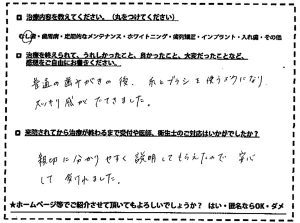 治療内容を教えてください。（丸をつけてください）
むし歯・歯周病・定期的なメンテナンス・ホワイトニング・歯列矯正・インプラント・入れ歯・その他
治療を終えられて、うれしかったこと、良かったこと、大変だったことなど、
感想をご自由にお書きください。
普通の歯みがきの後、糸とブラシを使うようになり、
スッキリ感がでてきました。
来院されてから治療が終わるまで受付や医師、衛生士のご対応はいかがでしたか？
親切に分かりやすく説明してもらえたので安心
して受けれました。
★ホームページ等でご紹介させて頂いてもよろしいでしょうか？ はい・匿名ならOK・ダメ